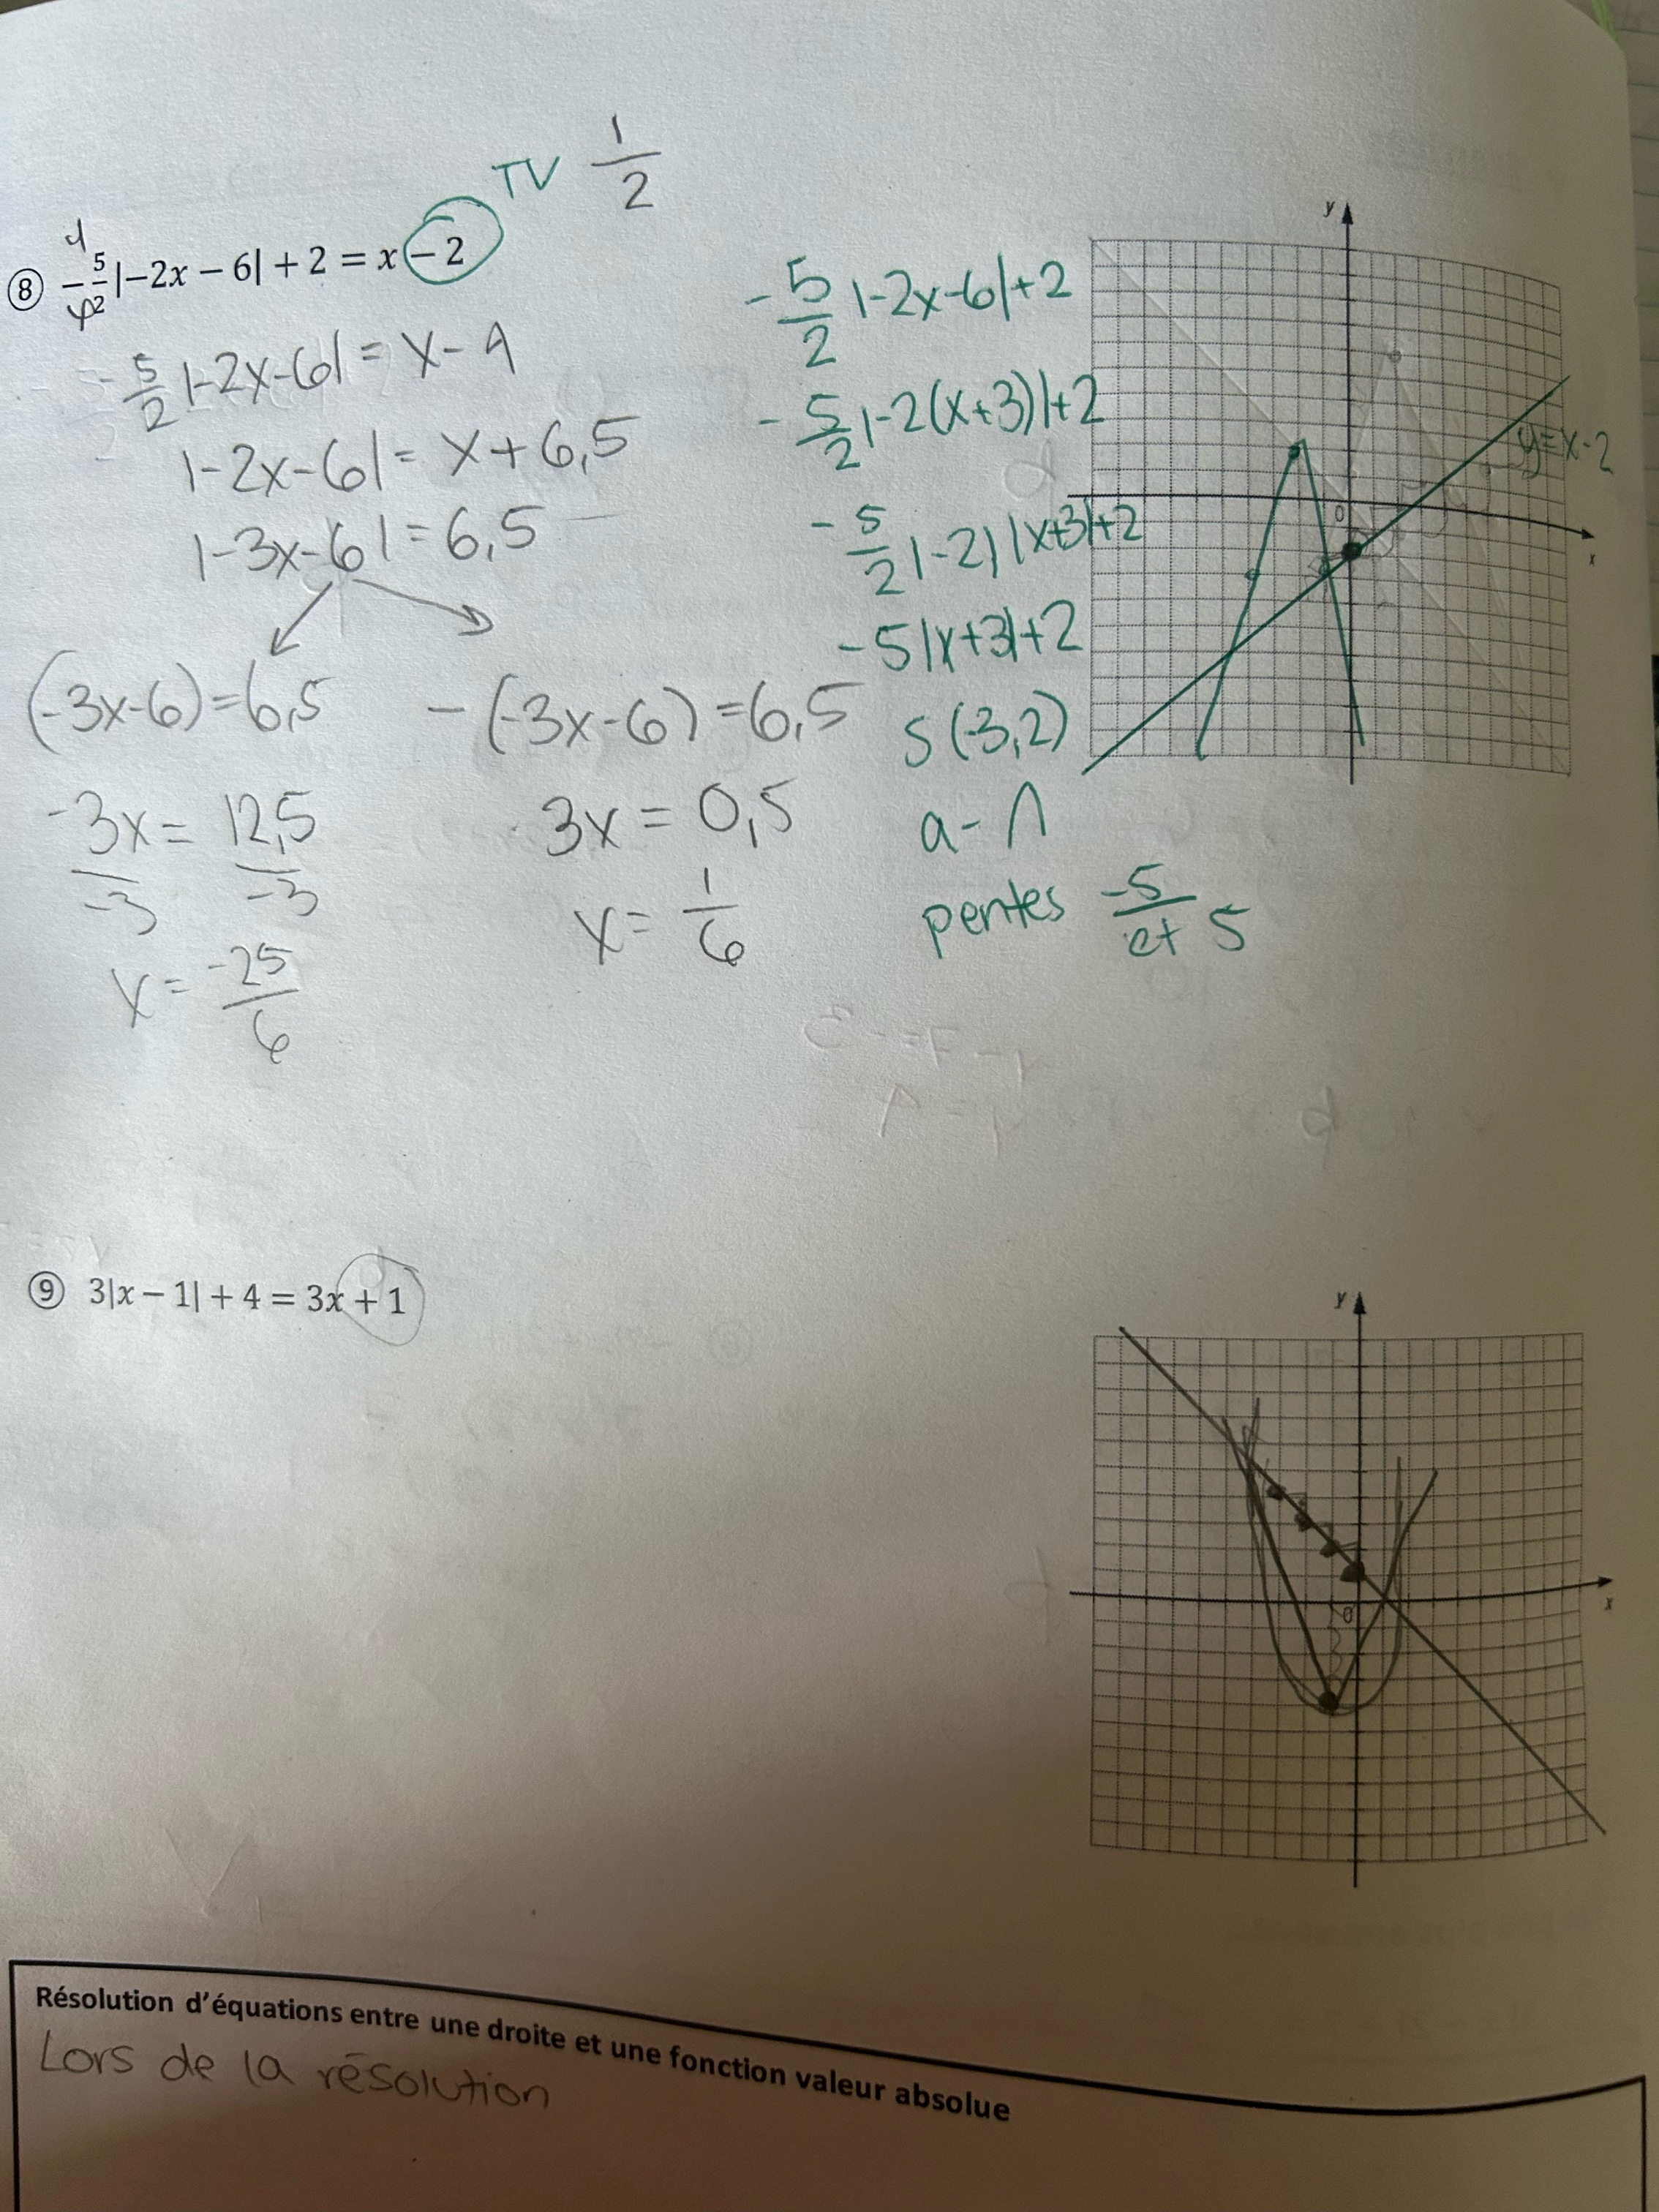 TV 1/2
⑧ -5/2|-2x - 6| + 2 = x - 2
-5/2 |-2x-6| = x-4
|-2x-6| = x+6,5
|-3x-6| = 6,5
(-3x-6) = 6,5
-3x = 12,5
-3 -3
x = -25/6
-(-3x-6) = 6,5
3x = 0,5
x = 1/6
-5/2 |-2x-6|+2
-5/2 |-2(x+3)|+2
-5/2 |-2| |x+3|+2
-5|x+3|+2
S (-3,2)
a - Λ
pentes -5 et 5
y
0
x
y=x-2
⑨ 3|x - 1| + 4 = 3x + 1
y
0
x
Résolution d'équations entre une droite et une fonction valeur absolue
Lors de la résolution